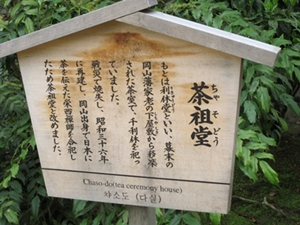 茶祖堂
ちゃ そ どう
もとは利休堂といい、幕末の
岡山藩家老の下屋敷から移築
された茶室で、千利休を祀っ
ていました。
戦災で焼失し、昭和三十六年
に再建し、岡山出身で日本に
茶を伝えた栄西禅師を合祀し
たため茶祖堂と改めました。
Chaso-do(tea ceremony house)
챠소도 (다실)